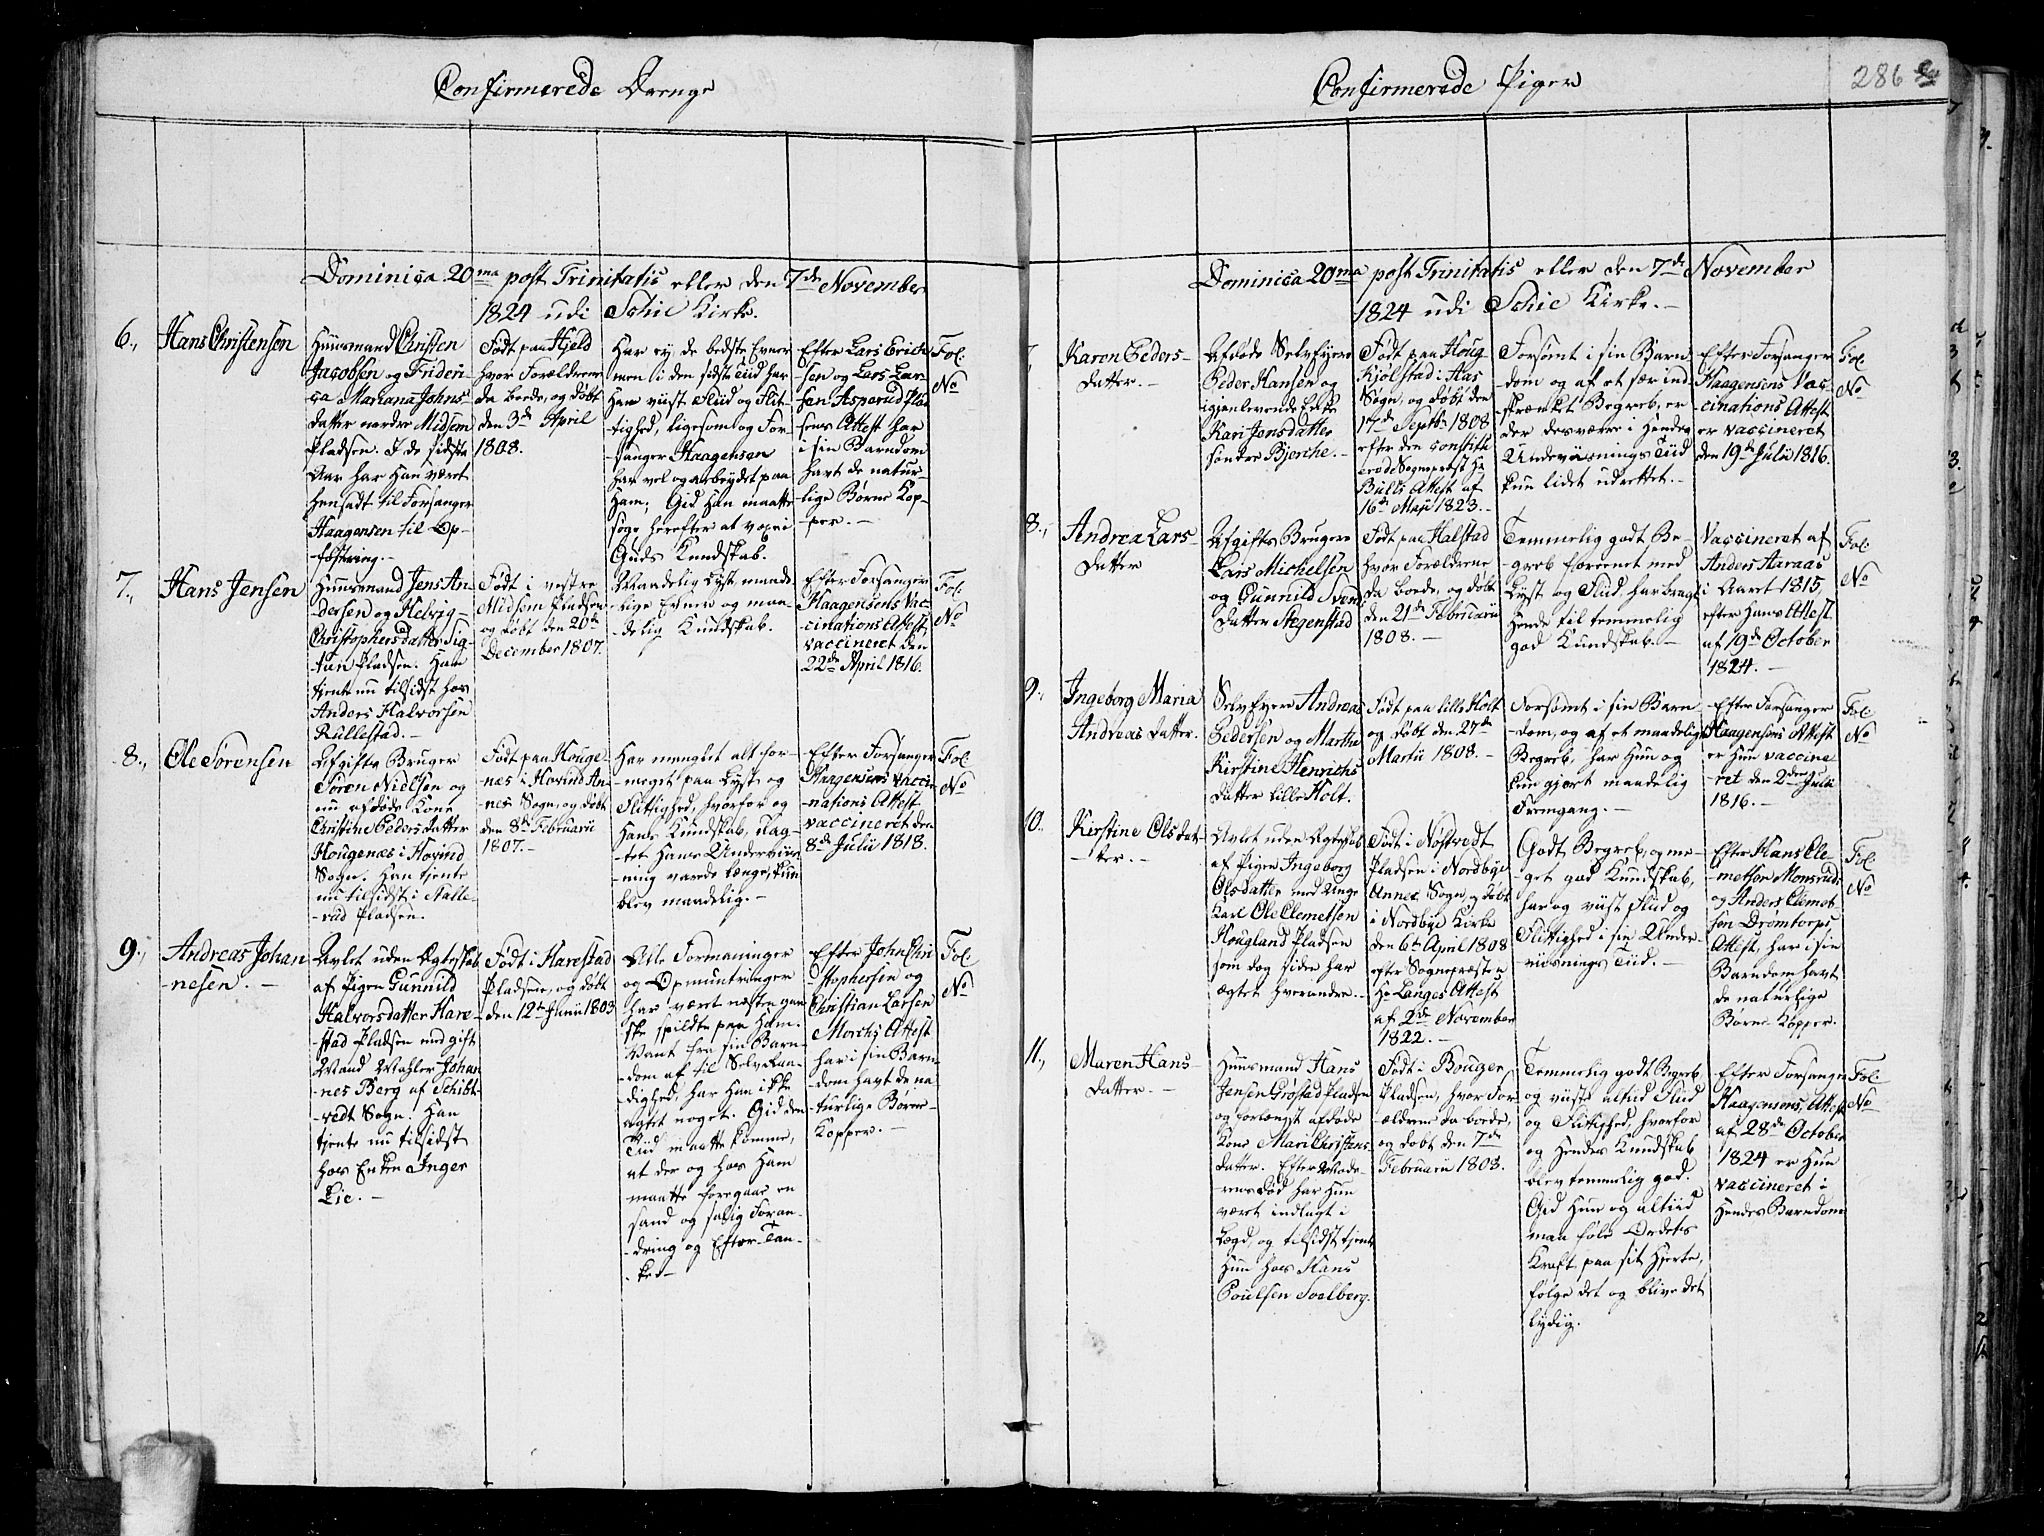 Confirmerede Drenge
Dominica 20ma post Trinitatis eller den 7de November
1824 udi Schie Kirke.
6., Hans Christensen
Huusmand Christen
Jacobsen og Frideri-
ca Mariana Johns-
datter nordre Midsem
Pladsen. I de sidste
Aar har Han været
hensadt til Forsanger
Haagensen til Op-
fostring.-
Født paa Hjeld
hvor Forældrene
da boede, og døbt
den 3de April
1808.
Har ej de bedste Evner
men i den sidste Tiid har
Han viist Fliid og Flit-
tighed, ligesom og For-
sanger Haagensen
har vel og arbeydet paa
Ham; Gid Han maatte
søge herefter at voxe i
Guds Kundskab.
Efter Lars Erich-
sen og Lars Lar-
sen Asperud Plad
sens Attest har
i sin Barndom
havt de natur-
lige Børne Kop-
per.-
Fol.
No
7., Hans Jensen
Huusmand Jens An-
dersen og Helvig
Christophersdatter Sig-
tun Pladsen. Han
tjente nu tilsidst hos
Anders Halvorsen
Rullestad.-
Født i vestre
Midsem Pladsen
og døbt den 20de
December 1807.
Maadelig Lyst, maade-
lige Evner og maa-
delig Kundskab.
Efter Forsanger
Haagensens Vac-
cinations Attest,
vaccineret den
22de April 1816.
Fol.
No
8., Ole Sørensen
Afgifts Bruger
Søren Nielsen og
nu afdøde Kone
Christine Pedersdatter
Hougenæs i Hovind
Sogn. Han tjente
nu tilsidst i Nalle-
rud Pladsen.
Født paa Houge-
næs i Hovind An-
nex Sogn, og døbt
den 8de Februarii
1807.-
Har manglet alt for-
meget paa Lyst og
Flittighed, hvorfor og
Hans Kundskab, uag-
tet Hans Underviis-
ning varede længe, kun
blev maadelig.-
Efter Forsanger
Haagensens Vacci-
nations Attest
vaccineret den
8de Julii 1818.
Fol.
No
9., Andreas Johan
nesen.-
Avlet uden Ægteskab
af Pigen Gunnild
Halvorsdatter Hare-
stad Pladsen med gift
Mand Mahler Johan
nes Berg af Schibt-
vedt Sogn. Han
tjente nu tilsidst
hos Enken Inger
Lie.-
Født i Harestad
Pladsen, og døbt
den 12te Junii 1803
Alle Formaninger
og Opmuntringer
har været næsten gan-
ske spildte paa Ham.
Vant fra sin Barn-
dom af til Selvraa-
dighed, har Han ikke
agtet noget. Gid den
Tiid maatte komme,
at der og hos Ham
maatte foregaae en
sand og salig Foran-
dring og Efter-Tan-
ke!-
Efter John Chri
stophersen og
Christian Larsen
Morchs Attest
har i sin Barn-
dom havt de na-
turlige Børne-
Kopper.-
Fol.
No
Confirmerede Piger
286
Dominica 20ma post Trinitatis eller den 7de November
1824 udi Schie Kirke.-
7, Karen Peders-
datter.-
Afdøde Selveyere
Peder Hansen og
igjenlevende Enke
Kari Jonsdatter
søndre Bjerche.-
Født paa Houg-
Kjølstad i Aas
Sogn, og døbt den
17de Septbr 1808
efter den constitu
erede Sognepræst Hr
Bulls Attest af
16de Maji 1823.-
Forsømt i sin Barn
dom og af et sær ind-
skrænket Begreb, er
der desværre i Hendes
Underviisnings Tiid
kun lidet udrettet.-
Efter Forsanger
Haagensens Vac-
cinations Attest
er vaccineret
den 19de Julii 1816.
Fol.
No
8., Andrea Lars-
datter
Afgifts Brugere
Lars Michelsen
og Gunnild Svens
datter Stegenstad
Født paa Halstad
hvor Forældrene
da boede, og døbt
den 21de Februarii
1808.-
Temmelig godt Be-
greb foreenet med
Lyst og Fliid, har bragt
Hende til temmelig
god Kundskab.-
Vaccineret af
Anders Haraas
i Aaret 1815,
efter Hans Attest
af 19de October
1824.-
Fol.
No
9., Ingeborg Maria
Andreas datter.
Selveyere Andreas
Pedersen og Martha
Kirstine Henrichs
datter lille Holt.
Født paa lille Holt
og døbt den 27de
Martii 1808.-
Forsømt i sin Barn
dom, og af et maadeligt
Begreb, har Hun og
kun gjort maadelig
Fremgang.-
Efter Forsanger
Haagensens Attest
er Hun vaccine
ret den 2den Julii
1816.-
Fol.
No
10., Kirstine Olsdat-
ter.-
Avlet uden Ægteskab
af Pigen Ingeborg
Olsdatter med Unge
Karl Ole Clemetsen
Hougland Pladsen
som dog siden har
ægtet hverandre.-
Født i Nøstvedt
Pladsen i Nordbye
Annex Sogn, og døbt
i Nordbye Kirke
den 6te April 1808
efter Sognepræsten
Hr Langes Attest
af 2de November
1822.-
Godt Begreb, og me-
get god Kundskab,
har og viist Fliid og
Flittighed i sin Under-
viisnings Tiid.-
Efter Hans Cle-
metsen Monsrud
og Anders Clemet-
sen Drømtorps
Attest, har i sin
Barndom havt
de naturlige
Børne-Kopper.
Fol.
No
11., Maren Hans-
datter.-
Huusmand Hans
Jensen Grøstad Pladsen
og forlængst afdøde
Kone Mari Christens
datter. Efter Mode-
rens Død har Hun
været indlagt i
Lægd, og tilsidst tjente
Hun hos Hans
Poulsen Solberg.
Født i Bouger
Pladsen, hvor For-
ældrene da boede,
og døbt den 7de
Februarii 1808.
Temmelig godt Begreb,
og viiste altid Fliid
og Flittighed, hvorfor
og Hendes Kundskab
blev temmelig god.
Gid Hun og altiid
maa føle Ordets
Kraft paa sit Hjerte,
følge det og blive det
lydig.
Efter Forsanger
Haagensens Attest
af 28de October
1824 er Hun
vaccineret i
Hendes Barndom
Fol.
No